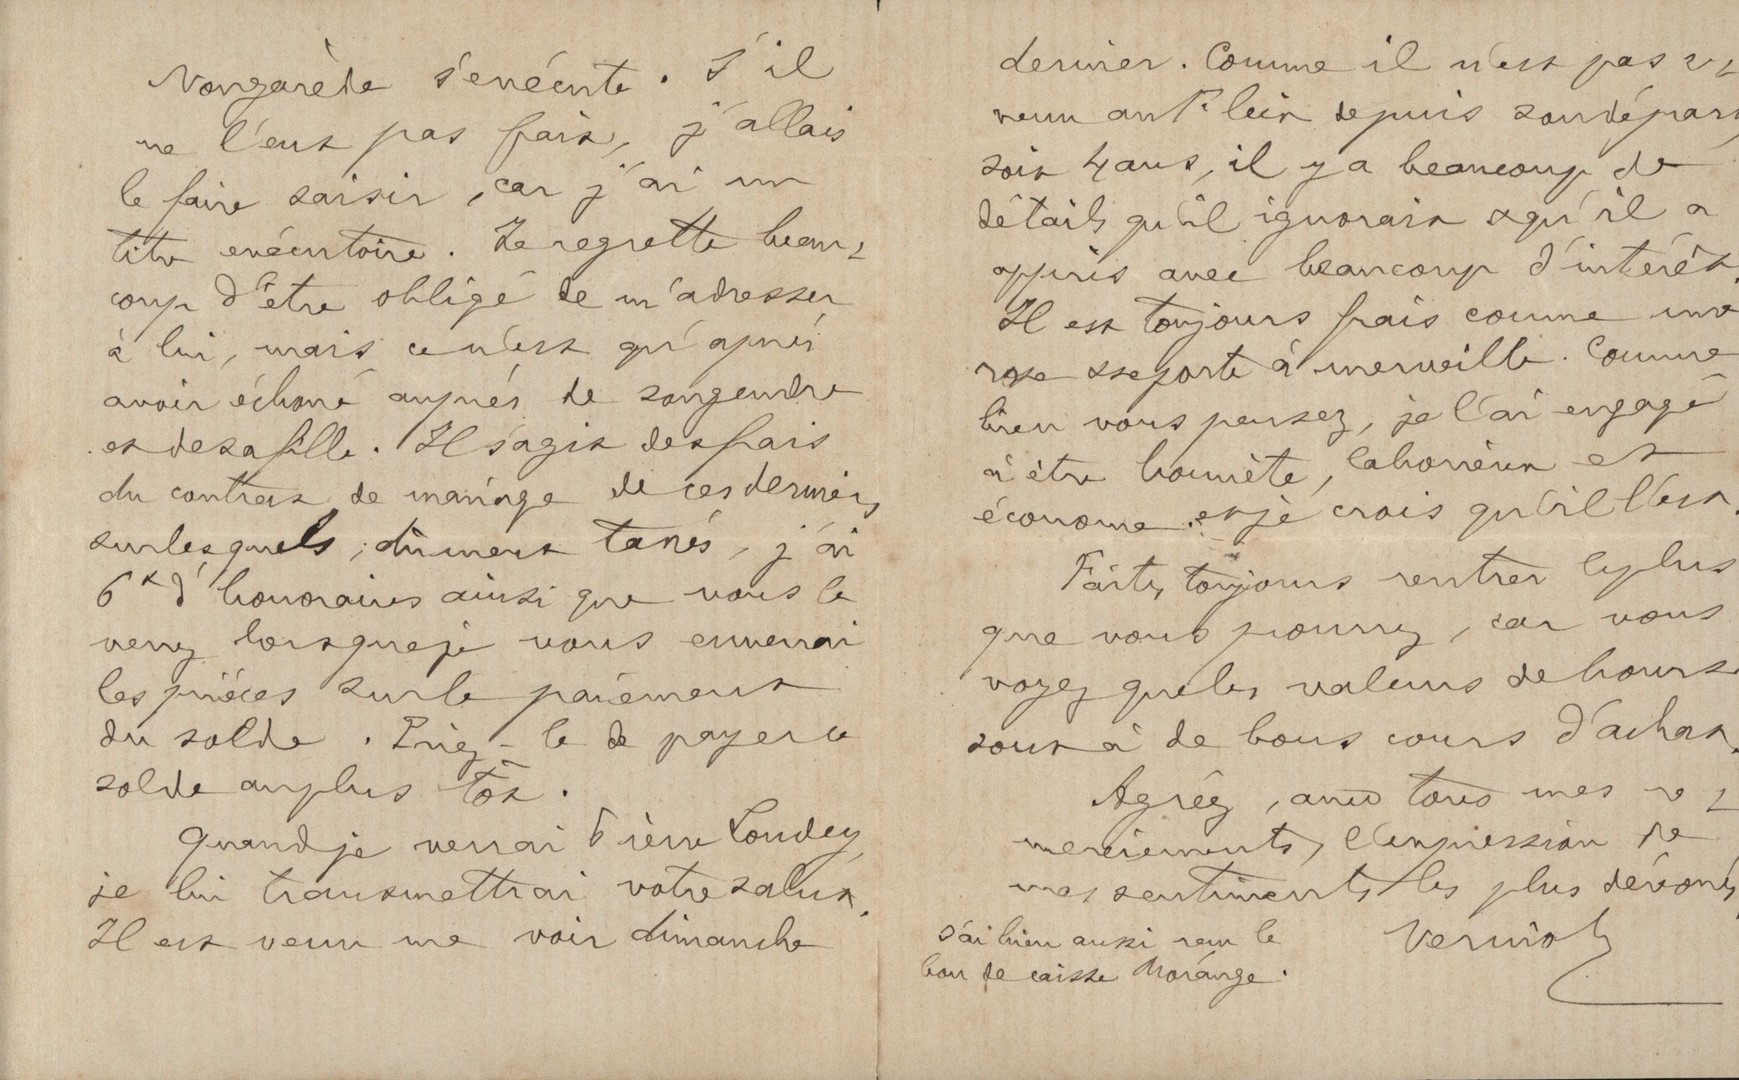 Nougarède s'exécute. S'il
ne l'eut pas fait, j'allais
le faire saisir, car j'ai un
titre exécutoire. Je regrette beau-
coup d'être obligé de m'adresser
à lui, mais ce n'est qu'après
avoir échoué auprès de son gendre
et de sa fille. Il s'agit des frais
du contrat de mariage de ces derniers
sur lesquels, dûment taxés, j'ai
6f d'honoraires ainsi que vous le
verrez lorsque je vous enverrai
les pièces sur le paiement
du solde. Priez-le de payer ce
solde au plus tôt.
Quand je verrai Pierre Loudey,
je lui transmettrai votre salut.
Il est venu me voir dimanche
dernier. Comme il n'est pas re-
venu au depuis son départ,
soit 4 ans, il y a beaucoup de
détails qu'il ignorait & qu'il a
appris avec beaucoup d'intérêt.
Il est toujours frais comme une
rose & se porte à merveille. Comme
bien vous pensez, je l'ai engagé
à être honnête, laborieux et
économe et je crois qu'il l'est.
Faites toujours rentrer le plus
que vous pourrez, car vous
voyez que les valeurs de bourse
sont à de bons cours d'achat.
Agréez, avec tous mes re-
merciements, l'expression de
mes sentiments les plus dévoués
Verniol
J'ai bien aussi reçu le
bon de caisse Morange.